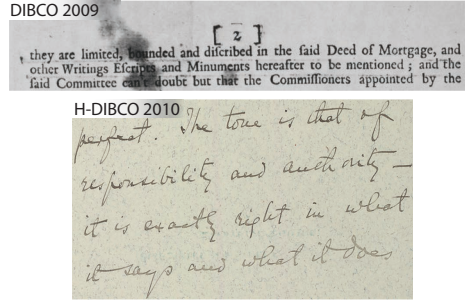 DIBCO 2009
[ 2 ]
, they are limited, bounded and diſcribed in the ſaid Deed of Mortgage, and
other Writings Eſcripts and Minuments hereafter to be mentioned ; and the
ſaid Committee can't doubt but that the Commiſſioners appointed by the
H-DIBCO 2010
perfect. The tone is that of
responsibility and authority —
it is exactly right in what
it says and what it does